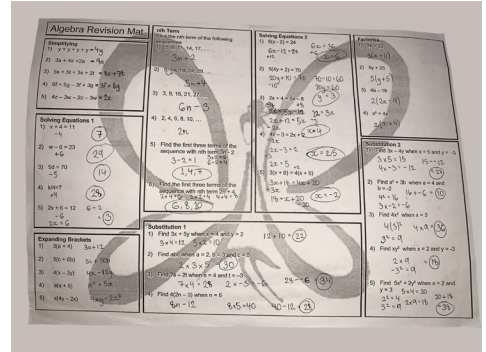 Algebra Revision Mat
Simplifying
1) y + y + y + y = 4y
2) 3a + 4a + 2a = 9a
3) 5s + 5t + 3s + 2t = 8s + 7t
4) 6f + 5g - 3f + 3g = 3f + 8g
5) 4z - 3w - 2z - 3w
Solving Equations 1
1) x + 4 = 11
-4
7
2) w - 6 = 23
+6
29
3) 5d = 70
14
4) k/4=7
x4
28
5) 2x + 6 = 12
-6
2x = 6
6 ÷ 2
= 3
Expanding Brackets
1) 3(a + 4) 3a + 12
2) 5(c + 6b) 5c + 30b
3) 4(x - 3y) 4x - 12y
4) n² + 5n
5) x(4y - 2x) 4xy - 2x²
nth Term
Find the nth term of the following sequences
1) 5, 8, 11, 14, 17, …
3n + 2
2) 9, 14, 19, 24, 29, …
5n + 4
3) 3, 9, 15, 21, 27…
6n - 3
4) 2, 4, 6, 8, 10, …
2n
5) Find the first three terms of the sequence with nth term 3n - 2
3 - 2 = 1
1, 4, 7
6) Find the first three terms of the sequence with nth term
6, 8, 20
Substitution 1
1) Find 3x + 5y when x = 4 and y = 2
3 x 4 = 12 5 x 2 = 10 12 + 10 = 22
2) Find abc when a = 2, b = 3 and c = 5
2 x 3 x 5 = 30
3) Find 7s - 2t when s = 4 and t = -3
7 x 4 = 28 2 x -3 = -6 28 - -6 = 34
4) Find 4(2n - 3) when n = 5
8n - 12 8 x 5 = 40 40 - 12 = 28
Solving Equations 2
1) 6(x - 2) = 24
6x - 12 = 24
+12
6x = 36
÷6
x = 6
2) 5(4y + 2) = 70
20y + 10 = 70
-10
70 - 10 = 60
20y = 60
y = 3
3) 2x + 4 = 5x - 8
2x + 12 = 5x
x = 4
4) 4x - 3 = 2x + 2
-2x
2x - 3 = 2
2x = 5
x = 2.5
5) 3(x + 6) = 4(x + 5)
3x + 18 = 4x + 20
18 = x + 20
x = -2
Factorise
3(x + 11)
2) 5y + 25
5(y + 5)
3) 4a - 18
2(2a - 9)
4) x² + 4x
x(x + 4)
Substitution 2
1) Find 3x - 4y when x = 5 and y = -3
3 x 5 = 15
4 x -3 = -12
15 - -12
2) Find a² + 3b when a = 4 and b = -2
4² = 16
3 x -2 = -6
16 + -6 = 10
3) Find 4x² when x = 3
4(3)²
3² = 9
4 x 9 = 36
4) Find xy² when x = 2 and y = -3
2 x 9
-3² = 9
18
5) Find 5x² + 2y² when x = 2 and y = 3
5 x 4 = 20
2² = 4
3² = 9
2 x 9 = 18
20 + 18
= 38